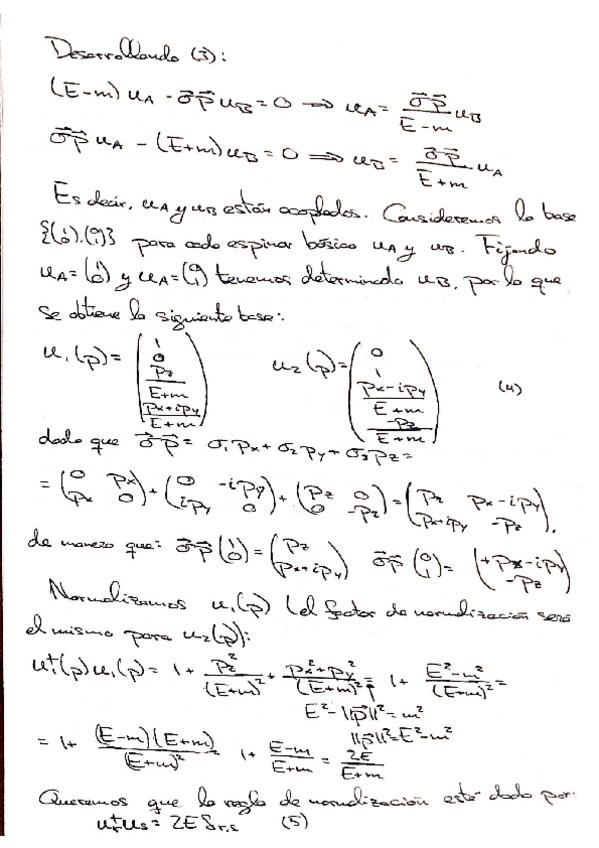 Desarrollando (3):
(E-m) u_A - σ⃗p⃗ u_B = 0 ⟹ u_A = σ⃗p⃗/(E-m) u_B
σ⃗p⃗ u_A - (E+m) u_B = 0 ⟹ u_B = σ⃗p⃗/(E+m) u_A
Es decir, u_A y u_B están acoplados. Consideremos la base
{(1 0), (0 1)} para cada espinor básico u_A y u_B. Fijando
u_A = (1 0) y u_A = (0 1) tenemos determinada u_B, por lo que
se obtiene la siguiente base:
u_1(p) = (1, 0, p_z/(E+m), (p_x+ip_y)/(E+m)) u_2(p) = (0, 1, (p_x-ip_y)/(E+m), -p_z/(E+m)) (4)
dado que σ⃗p⃗ = σ_1 p_x + σ_2 p_y + σ_3 p_z =
= (0 p_x; p_x 0) + (0 -ip_y; ip_y 0) + (p_z 0; 0 -p_z) = (p_z p_x-ip_y; p_x+ip_y -p_z),
de manera que: σ⃗p⃗ (1 0) = (p_z; p_x+ip_y) σ⃗p⃗ (0 1) = (+p_x-ip_y; -p_z)
Normalizamos u_1(p) (el factor de normalización será
el mismo para u_2(p)):
u_1†(p) u_1(p) = 1 + p_z²/(E+m)² + (p_x²+p_y²)/(E+m)² = 1 + (E²-m²)/(E+m)² =
E² - ||p⃗||² = m²
||p⃗||² = E² - m²
= 1 + (E-m)(E+m)/(E+m)² 1 + (E-m)/(E+m) = 2E/(E+m)
Queremos que la regla de normalización esté dada por:
u_r† u_s = 2E δ_{r,s} (5)